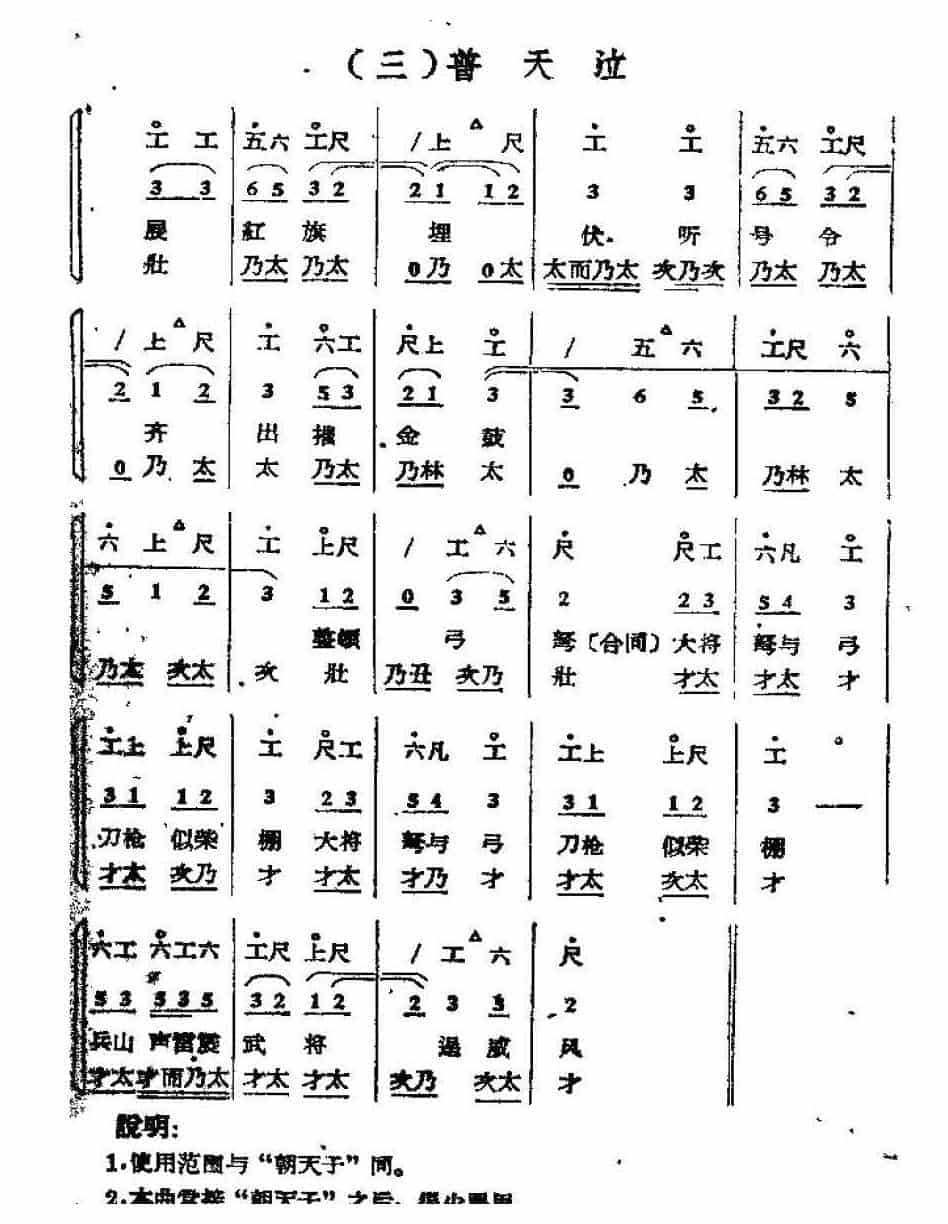 （三）普天泣
工 工 五六 工尺 / 上 尺 工 工 五六 工尺
3 3 6 5 3 2 2 1 1 2 3 3 6 5 3 2
展 紅 旗 埋 伏 听 号 令
壯 乃太 乃太 0乃 0太 太而乃太 亥乃亥 乃太 乃太
/ 上 尺 工 六工 尺上 工 / 五 六 工尺 六
2 1 2 3 5 3 2 1 3 3 6 5 3 2 5
齐 出 金 鼓
0 乃 太 太 乃太 乃林 太 0 乃 太 乃林 太
六 上 尺 工 上尺 / 工 六 尺 尺工 六凡 工
5 1 2 3 1 2 0 3 5 2 2 3 5 4 3
整頓 弓 弩〔合同〕大将 弩与 弓
乃太 亥太 亥 壯 乃丑 亥乃 壯 才太 才太 才
工上 上尺 工 尺工 六凡 工 工上 上尺 工
3 1 1 2 3 2 3 5 4 3 3 1 1 2 3 —
刀枪 似柴 棚 大将 弩与 弓 刀枪 似柴 棚
才太 亥乃 才 才太 才乃 才 才太 亥太 才
六工 六工六 工尺 上尺 / 工 六 尺
5 3 5 3 5 3 2 1 2 2 3 3 2
兵山 声雷震 武 将 逞 威 风
才太 才而乃太 才太 才太 亥乃 亥太 才
說明：
1.使用范围与“朝天子”同。
2.本曲常接“朝天子”之后，